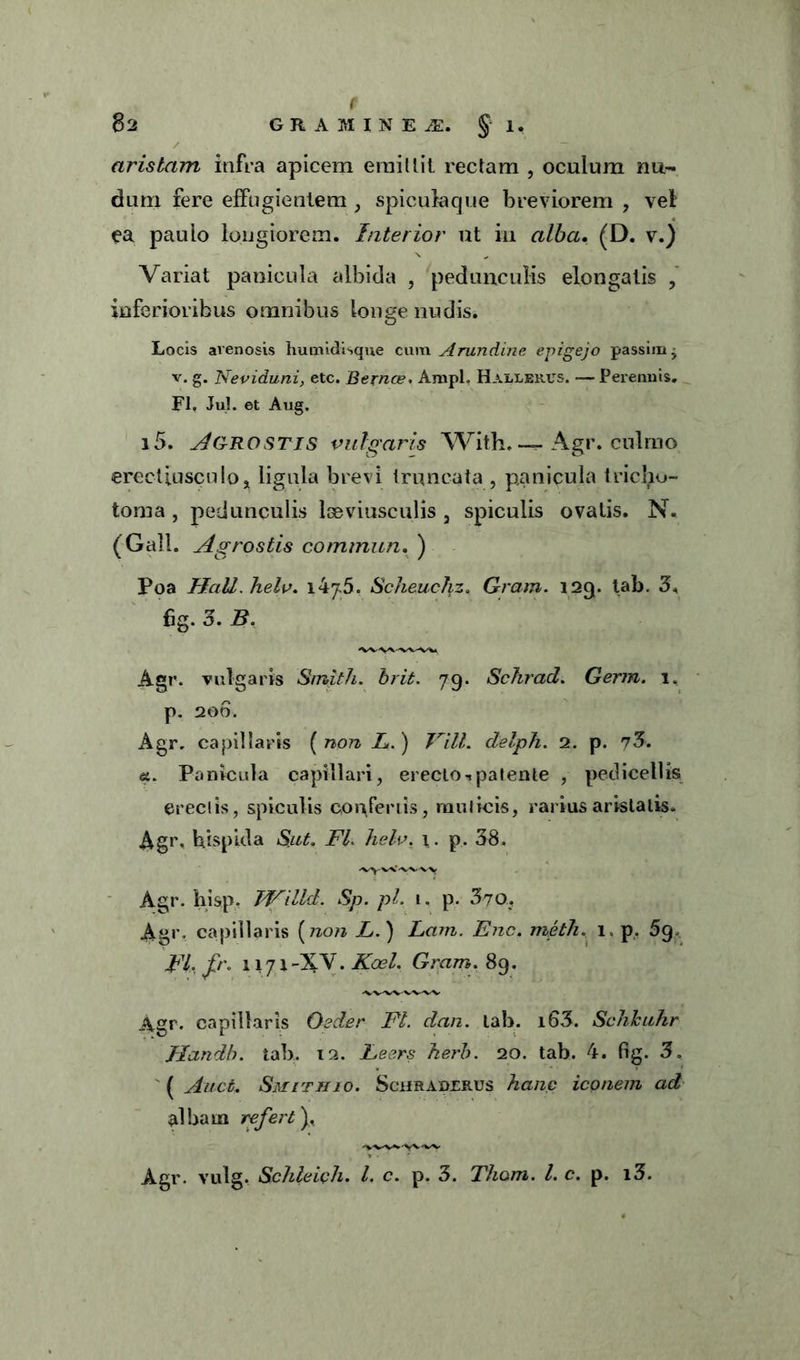 82 GRAMINEÆ. § 1.
aristam infra apicem emittit rectam , oculum nu-
dum fere effugientem , spiculaque breviorem , vel
ea paulo longiorem. Interior ut in alba. (D. v.)
Variat panicula albida , pedunculis elongatis ,
inferioribus omnibus longe nudis.
Locis arenosis humidisque cum Arundine epigejo passim;
v. g. Neviduni, etc. Bernœ. Ampl. HALLERUS. — Perennis.
Fl. Jul. et Aug.
15. AGROSTIS vulgaris With. — Agr. culmo
erectiusculo, ligula brevi truncata , panicula tricho-
toma , pedunculis læviusculis , spiculis ovatis. N.
(Gall. Agrostis commun. )
Poa Hall. helv. 1475. Scheuchz. Gram. 129. tab. 3,
fig. 3. B.
Agr. vulgaris Smith. brit. 79. Schrad. Germ. 1.
p. 206.
Agr. capillaris ( non L. ) Vill. delph. 2. p. 73.
α. Panicula capillari, erecto-patente , pedicellis
erectis, spiculis confertis, muticis, rarius aristatis.
Agr. hispida Sut. Fl. helv. 1. p. 38.
Agr. hisp. Willd. Sp. pl. 1. p. 370.
Agr. capillaris (non L. ) Lam. Enc. méth. 1. p. 59.
Fl. fr. 1171-XV. Kœl. Gram. 89.
Agr. capillaris Oeder Fl. dan. tab. 163. Schkuhr
Handb. tab. 12. Leers herb. 20. tab. 4. fig. 3.
( Auct. SMITHIO. SCHRADERUS hanc iconem ad
albam refert ).
Agr. vulg. Schleich. l. c. p. 3. Thom. l. c. p. 13.